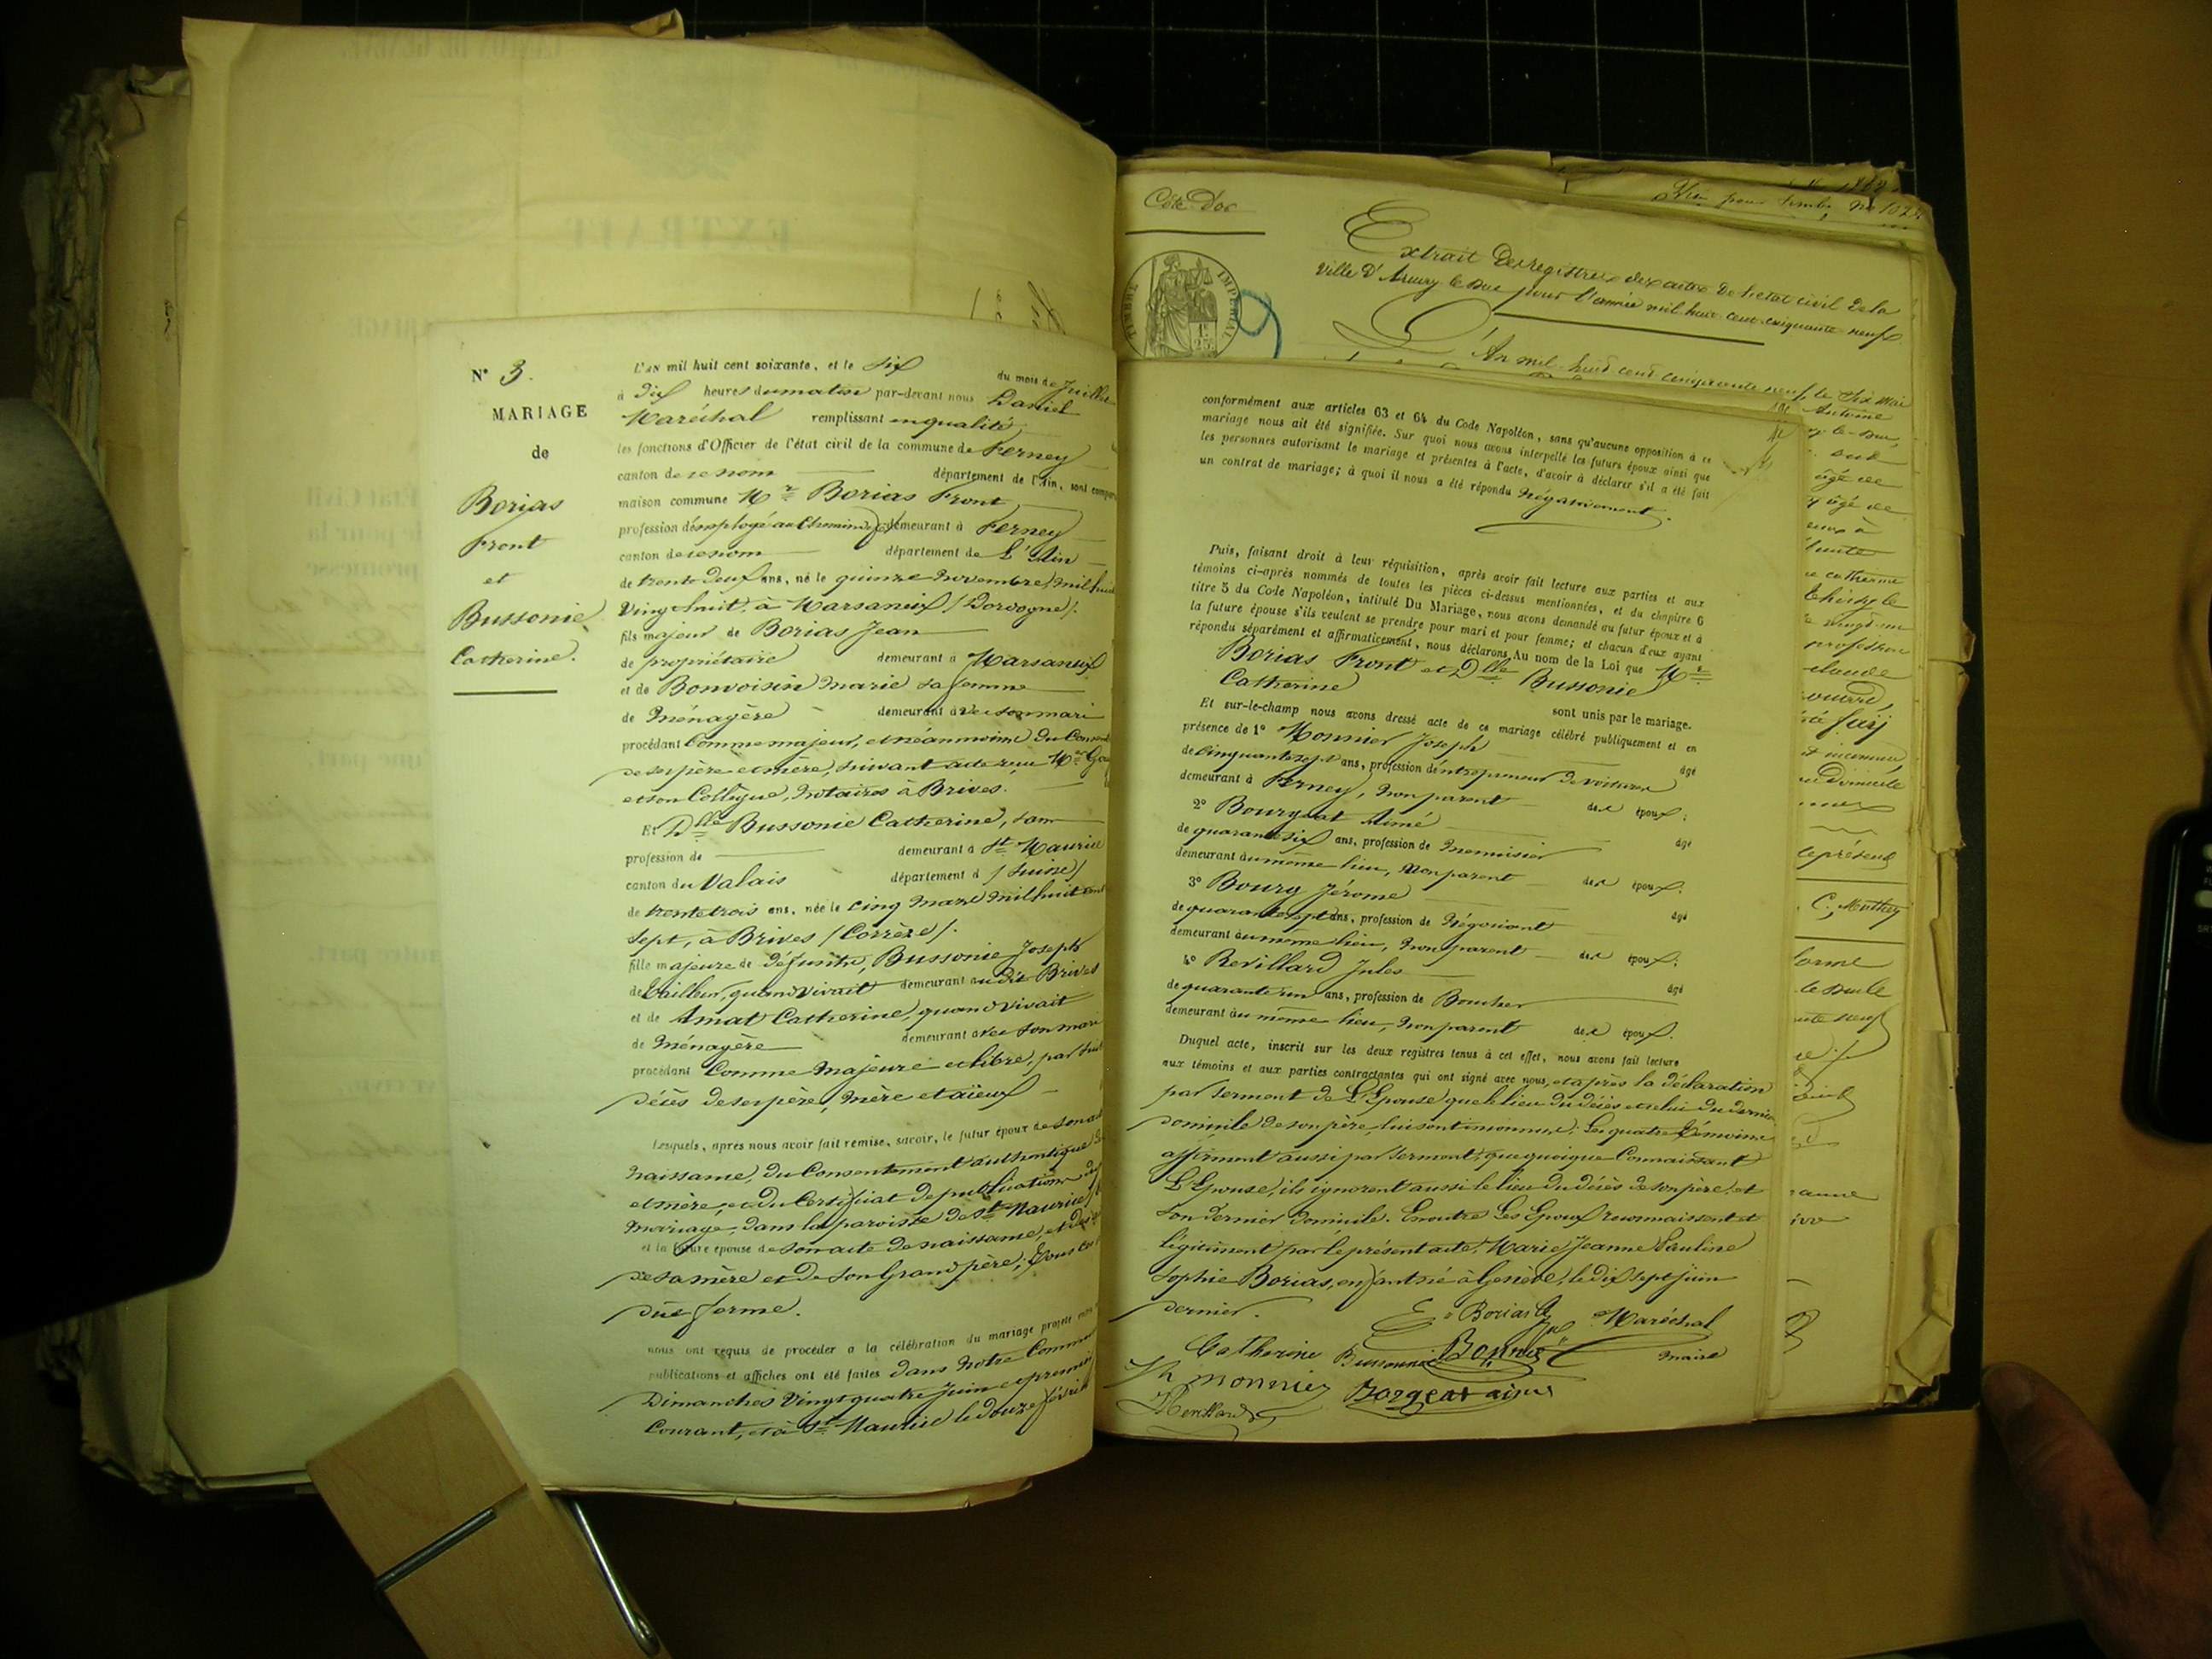 N° 3.
MARIAGE
de
Borias
Front
et
Bussonie
Catherine.
L'AN mil huit cent soixante, et le Six du mois de Juillet
à Dix heures du matin par-devant nous Daniel
Maréchal remplissant en qualité
les fonctions d'Officier de l'état civil de la commune de Ferney
canton de ce nom département de l'Ain, sont
maison commune Mr Borias Front
profession d'employé au Chemin de demeurant à Ferney
canton de ce nom département de L'Ain
de trente deux ans, né le quinze Novembre mil huit
Vingt huit, à Marsaneix (Dordogne).
fils majeur de Borias Jean
de propriétaire demeurant à Marsaneix
et de Bonvoisin Marie sa femme
de Ménagère demeurant avec son mari
procédant Comme majeur, et néanmoins du
de ses père et mère, suivant acte reçu Me
et son Collègue, Notaires à Brives.
Et Dlle Bussonie Catherine, sans
profession de demeurant à St Maurice
canton du Valais département d (Suisse)
de trente trois ans, née le cinq Mars mil huit cent
sept, à Brives (Corrèze).
fille majeure de défunts, Bussonie Joseph
de tailleur, quand vivait demeurant au dit Brives
et de Amat Catherine, quand vivait
de Ménagère demeurant avec son mari
procédant Comme Majeure et libre, par suite
décès de ses père, mère et aïeux
Lesquels, après nous avoir fait remise, savoir, le futur époux de son acte
naissance, du Consentement authentique
et mère, et du Certificat de publication
mariage, dans la paroisse de St Maurice
et la future épouse de son acte de naissance, et
de sa mère et de son Grand père; Tous
dûe forme.
nous ont requis de procéder à la célébration du mariage projeté
publications et affiches ont été faites dans Notre Commune
Dimanches Vingt quatre Juin et premier
Courant, et à St Maurice le douze février
Côte D'or
TIMBRE IMPERIAL
Extrait Des registres des actes De l'état civil de la
Ville D' le Duc pour l'année mil huit cent cinquante neuf
L'An mil huit cent cinquante neuf, le Six Mai
conformément aux articles 63 et 64 du Code Napoléon, sans qu'aucune opposition à ce
mariage nous ait été signifiée. Sur quoi nous avons interpellé les futurs époux ainsi que
les personnes autorisant le mariage et présentes à l'acte, d'avoir à déclarer s'il a été fait
un contrat de mariage; à quoi il nous a été répondu Négativement.
Puis, faisant droit à leur réquisition, après avoir fait lecture aux parties et aux
témoins ci-après nommés de toutes les pièces ci-dessus mentionnées, et du chapitre 6
titre 5 du Code Napoléon, intitulé Du Mariage, nous avons demandé au futur époux et à
la future épouse s'ils veulent se prendre pour mari et pour femme; et chacun d'eux ayant
répondu séparément et affirmativement, nous déclarons Au nom de la Loi que Mr
Borias Front et Dlle Bussonie
Catherine sont unis par le mariage.
Et sur-le-champ nous avons dressé acte de ce mariage célébré publiquement et en
présence de 1° Monnier Joseph âgé
de Cinquante sept ans, profession d'entrepreneur de voitures
demeurant à Ferney, Non parent des époux;
2° Bourgeat Aimé âgé
de quarante six ans, profession de Menuisier
demeurant au même lieu, Non parent des époux.
3° Bourg Jérome âgé
de quarante sept ans, profession de Négociant
demeurant au même lieu, Non parent des époux.
4° Revillard Jules âgé
de quarante un ans, profession de Boucher
demeurant au même lieu, Non parent des époux.
Duquel acte, inscrit sur les deux registres tenus à cet effet, nous avons fait lecture
aux témoins et aux parties contractantes qui ont signé avec nous, et après la déclaration
par serment de L'Epouse que le lieu du décès et celui du dernier
domicile de son père, lui sont inconnus; Les quatre témoins
affirment aussi par serment, que quoique Connaissant
L'Epouse, ils ignorent aussi le lieu du décès de son père, et
son dernier domicile. En outre Les Epoux reconnaissent et
légitiment par le présent acte, Marie Jeanne Pauline
Sophie Borias, enfant né à Genève, le dix sept juin
dernier.
Borias Maréchal
Catherine Bussonie maire
Jh monnier Borgeat aimé
Revillard